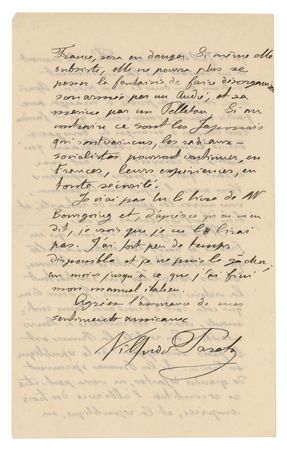 France, sera en danger. Si même elle
subsiste, elle ne pourra plus se
passer la fantaisie de faire désorganiser
son armée par un André, et sa
marine par un Pelletan. Si au
contraire ce sont les Japonais
qui sont vaincus, les radicaux-
socialistes pourront continuer, en
France, leurs expériences, en
toute sécurité.
Je n'ai pas lu le livre de Mr
Bourgoing et, d'après ce qu'on m'en
dit, je crois que je ne le lirai
pas. J'ai fort peu de temps
disponible et je ne puis le gâcher,
au moins jusqu'à ce que j'ai fini
mon manuel italien.
Agréez l'assurance de mes
sentiments amicaux
Vilfredo Pareto